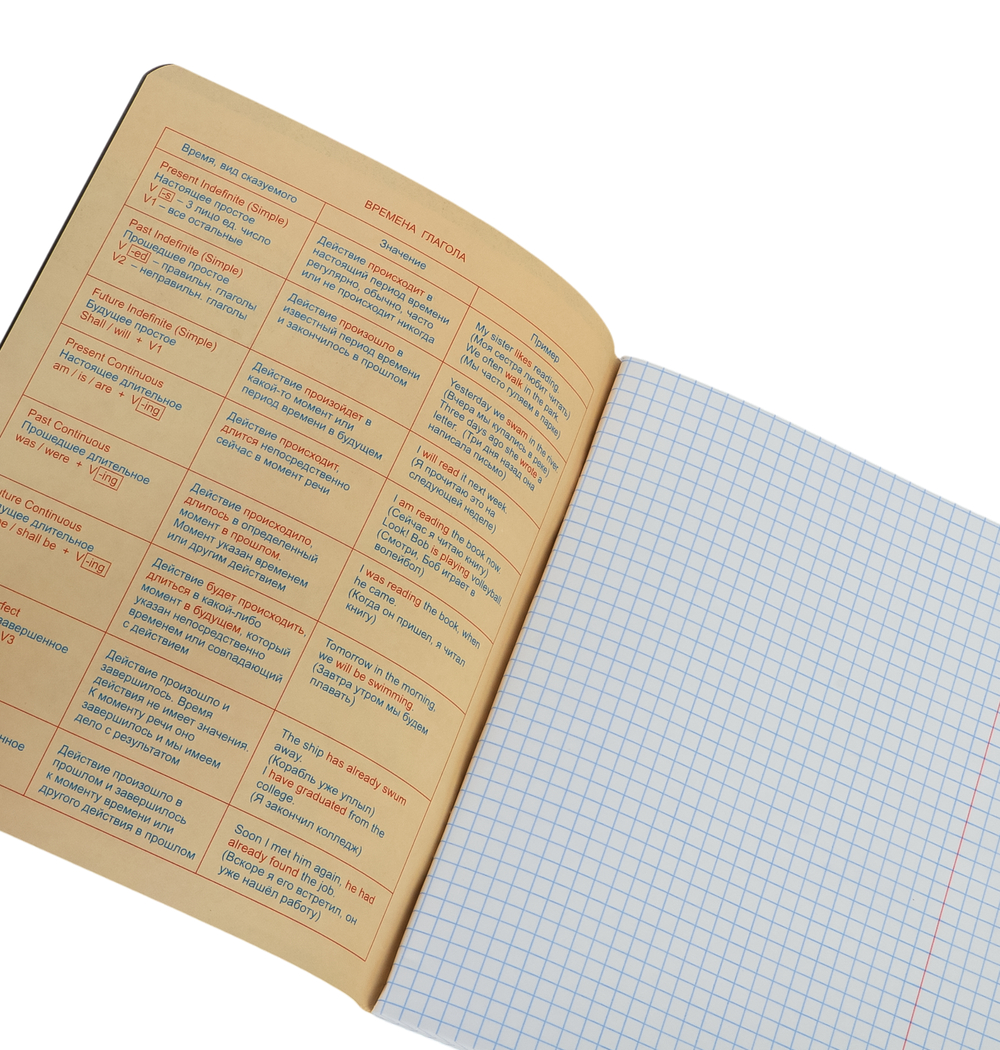 ВРЕМЕНА ГЛАГОЛА
Время, вид сказуемого
Значение
Пример
Present Indefinite (Simple)
Настоящее простое
V -s – 3 лицо ед. число
V1 – все остальные
Действие происходит в
настоящий период времени
регулярно, обычно, часто
или не происходит никогда
My sister likes reading.
(Моя сестра любит читать)
We often walk in the park.
(Мы часто гуляем в парке)
Past Indefinite (Simple)
Прошедшее простое
V -ed – правильн. глаголы
V2 – неправильн. глаголы
Действие произошло в
известный период времени
и закончилось в прошлом
Yesterday we swam in the river.
(Вчера мы купались в реке)
Three days ago she wrote a
letter. (Три дня назад она
написала письмо)
Future Indefinite (Simple)
Будущее простое
Shall / will + V1
Действие произойдет в
какой-то момент или
период времени в будущем
I will read it next week.
(Я прочитаю это на
следующей неделе)
Present Continuous
Настоящее длительное
am / is / are + V -ing
Действие происходит,
длится непосредственно
сейчас в момент речи
I am reading the book now.
(Сейчас я читаю книгу)
Look! Bob is playing volleyball.
(Смотри, Боб играет в
волейбол)
Past Continuous
Прошедшее длительное
was / were + V -ing
Действие происходило,
длилось в определенный
момент в прошлом.
Момент указан временем
или другим действием
I was reading the book, when
he came.
(Когда он пришел, я читал
книгу)
uture Continuous
ущее длительное
e / shall be + V -ing
Действие будет происходить,
длиться в какой-либо
момент в будущем, который
указан непосредственно
временем или совпадающий
с действием
Tomorrow in the morning,
we will be swimming.
(Завтра утром мы будем
плавать)
fect
завершенное
V3
Действие произошло и
завершилось. Время
действия не имеет значения.
К моменту речи оно
завершилось и мы имеем
дело с результатом
The ship has already swum
away.
(Корабль уже уплыл)
I have graduated from the
college.
(Я закончил колледж)
нное
Действие произошло в
прошлом и завершилось
к моменту времени или
другого действия в прошлом
Soon I met him again, he had
already found the job.
(Вскоре я его встретил, он
уже нашёл работу)